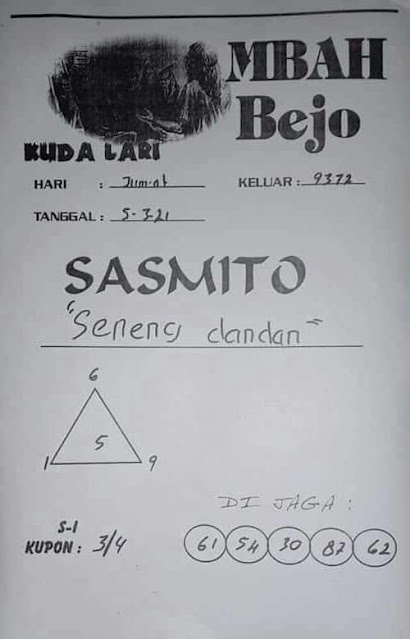 MBAH
Bejo
KUDA LARI
HARI : Jum-at KELUAR : 9372
TANGGAL : 5-3-21
SASMITO
"Seneng dandan"
6
5
1 9
DI JAGA :
S-1
KUPON : 3/4 61 54 30 87 62